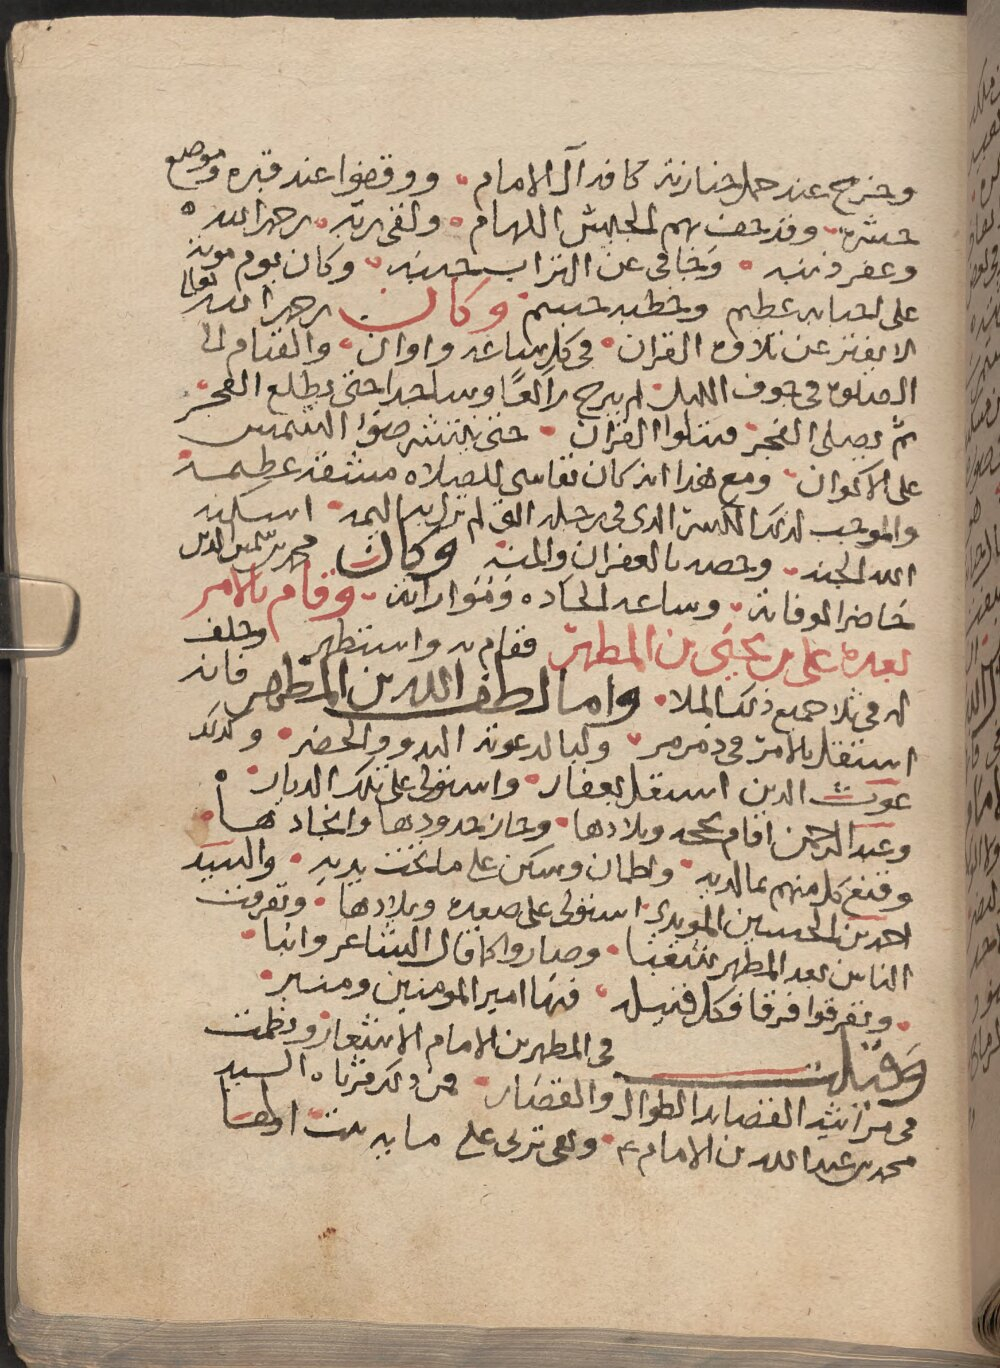 وخرج عند حمل جنازته كافة آل الامام ووقفوا عند قبره وموضع
حشرته وقد حف بهم الجيش اللهام ولقي ربه رحمه الله
وغفر ذنبه وجافى عن التراب جنبه وكان يوم موته
على احبابه عظيم وخطبه جسيم وكان رحمه الله تعالى
لا يفتر عن تلاوة القران في كل ساعة واوان والقيام الى
الصلوة في جوف الليل لم يبرح راكعًا وساجدا حتى يطلع الفجر
ثم يصلى الفجر فيتلوا القران حتى ينتشر ضوء الشمس
على الاكوان ومع هذا انه كان يقاسى للصلاه مشقة عظيمة
والموجب لذلك الكسر الذى في رجله التى لم تزل به اليمه اسكنه
الله الجنه وخصه بالغفران والمنه وكان محمد بن شمس الدين
حاضرا لوفاته وساعد الحاده ومواراته وقام بالامر
بعده على بن يحيى بن المطهر فقام به واستظهر وحلف
له في ثلا جميع ذلك الملا واما لطف الله بن المطهر فانه
استقل بالامر في ذمرمر ولبا لدعوته البدو والحضر وكذلك
غوث الدين استقل بعفار واستولى على تلك الديار
وعبد الرحمن اقام بحجه وبلادها وحاز حدودها وانجادها
وقنع كل منهم بما لديه واطمان وسكن على ما تحت يديه والسيد
احمد بن الحسين المويدى استولى على صعده وبلادها وتفرقت
الناس بعد المطهر شغبا وصاروا كما قال الشاعر وانبا
وتفرقوا فرقا فكل قبيله فيها امير المومنين ومنبر
وقيلت في المطهر بن الامام الاشعار ونظمت
في مراثيه القصايد الطوال والقصار فمن ذلك مرثاه السيد
محمد بن عبد الله بن الامام وهى تربى على مايه بيت اولها